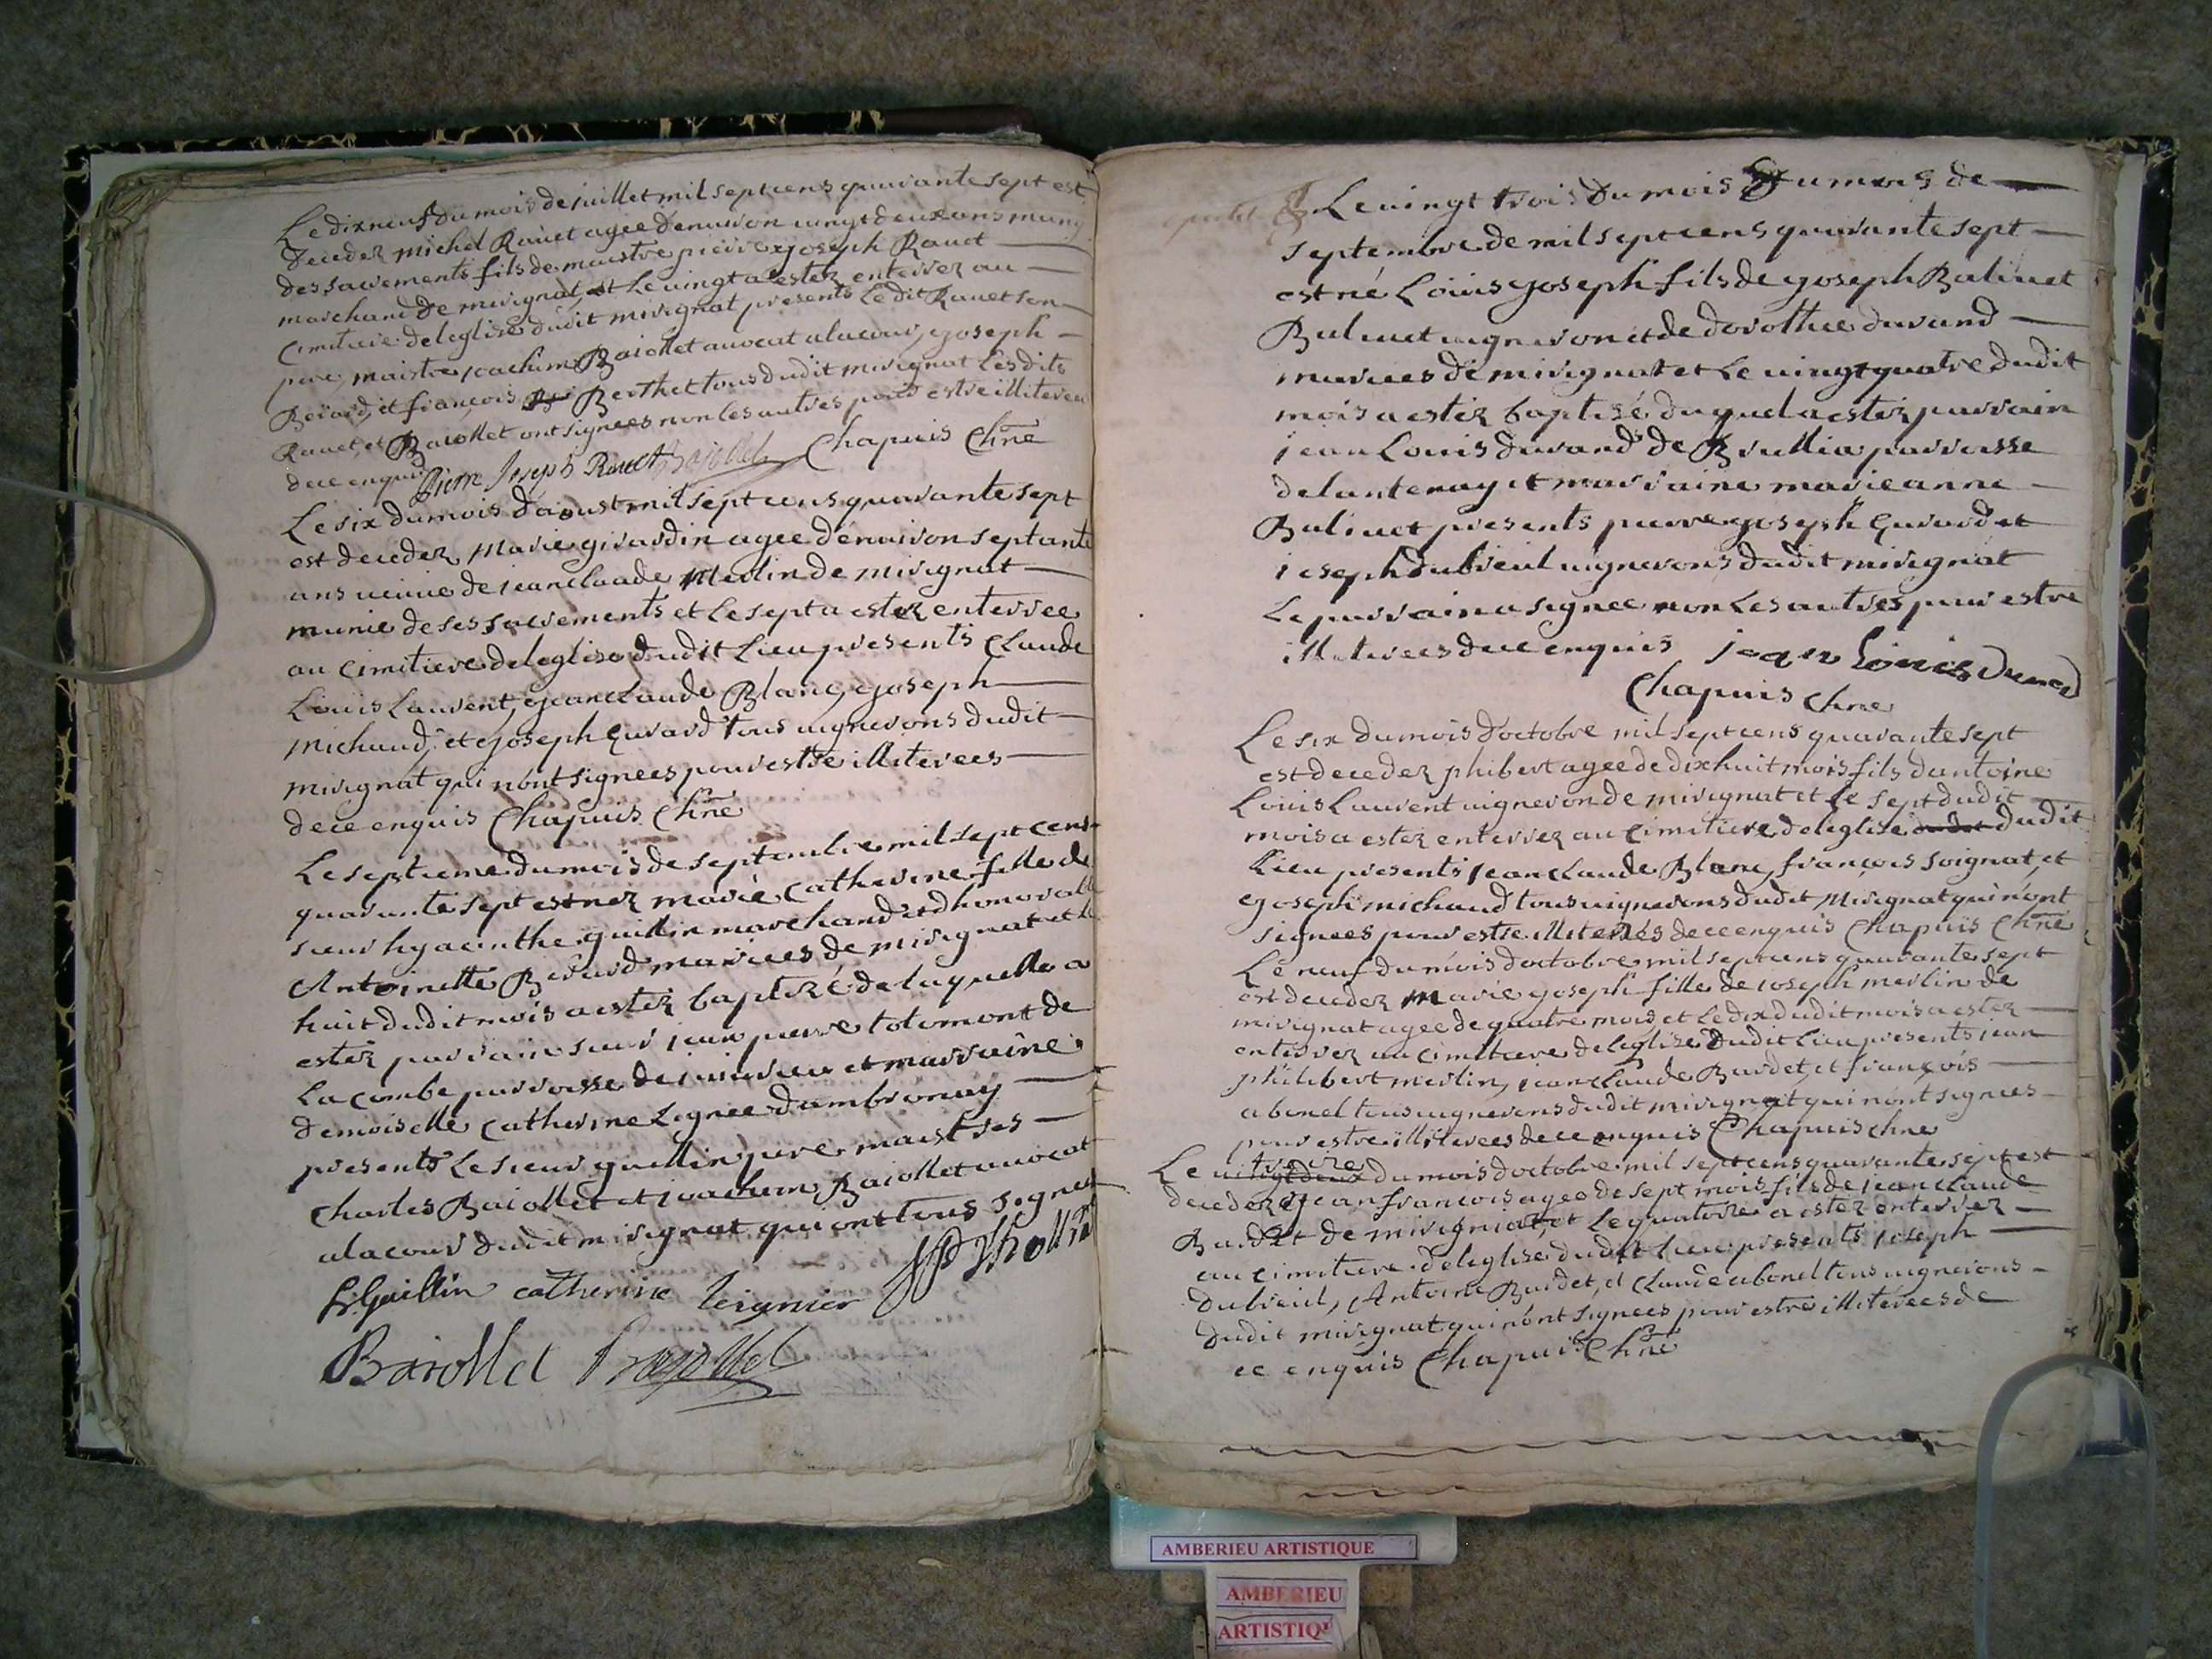 Le dixneuf du mois de juillet mil sept cens quarante sept est
deceder michel Rauet agee denuiron uingt deux ans muny
des sacrements fils de maistre pierre joseph Rauet
marchand de mirignat, et le uingt a ester enterrer au
cimitiere de leglise dudit mirignat presents Le dit Rauet son
pere, maistre joachim Baiollet auocat alacour, joseph
Berard, et françois Berthet tous dudit mirignat Lesdits
Rauet, et Baiollet ont signees non les autres pour estre illiterees
de ce enquis Pierre Joseph Rauet Bajollet Chapuis Chne
Le six du mois daoust mil sept cens quarante sept
est deceder, Marie girardin agee denuiron septante
ans ueuue de jean claude Merlin de mirignat
munie de ses sacrements et le sept a ester enterree
au cimitiere de leglise dudit Lieu presents Claude
Louis Laurent, jean claude Blanc, joseph
michaud, et joseph Gurard tous uignerons dudit
mirignat qui nont signees pour estre illiterees
de ce enquis Chapuis Chne
Le septieme du mois de septembre mil sept cens
quarante sept est nez marie Catherine fille de
sieur hyacinthe guillin marchand et dhonorable
Antoinette Berard mariees de mirignat et le
huit dudit mois a ester baptizé de laquelle a
ester parrain sieur jean pierre tolomont de
La combe parroisse de et marraine
demoiselle Catherine Lignee dambronay
presents Le sieur guillin pere maistres
Charles Baiollet et joachim Baiollet auocat
alacour dudit mirignat qui ont tous signes
Guillin catherine leignier
Baiollet Bajollet
Le uingt trois du mois du mois de
septembre de mil sept cens quarante sept
est né Louis joseph fils de joseph Baliuet
Baliuet uigneron et de dorothee durand
mariees de mirignat et Le uingt quatre dudit
mois a ester baptisé duquel a ester parrain
jean Louis durand de Brullia parroisse
de lantenay et marraine marie anne
Baliuet presents pierre joseph Gurard et
joseph dubreul uignerons dudit mirignat
Le parrain a signee non Les autres pour estre
illiterees de ce enquis jean Louis Durand
Chapuis Chne
Le six du mois doctobre mil sept cens quarante sept
est deceder phibert agee de dixhuit mois fils dantoine
Louis Laurent uigneron de mirignat et le sept dudit
mois a ester enterrer au cimitiere de leglise dudit
Lieu presents jean claude Blanc, françois soignat, et
joseph michaud tous uignerons dudit Mirignat qui nont
signees pour estre illiterés de ce enquis Chapuis Chne
Le neuf du mois doctobre mil sept cens quarante sept
est deceder marie joseph fille de joseph merlin de
mirignat agee de quatre mois et le dix dudit mois a ester
enterrer au cimitiere de leglise dudit lieu presents jean
philibert merlin, jean claude Bardet, et françois
abonel tous uignerons dudit mirignat qui nont signees
pour estre illiterees de ce enquis Chapuis chne
Le treize du mois doctobre mil sept cens quarante sept est
deceder jean francois agee de sept mois fils de jean claude
Bardet de mirigniat, et le quatorze a ester enterrer
au cimitiere de leglise dudit lieu presents joseph
dubreul, Antoine Bardet, et claude abonel tous uignerons
dudit mirignat qui nont signees pour estre illiterees de
ce enquis Chapuis Chne
AMBERIEU ARTISTIQUE
AMBERIEU
ARTISTIQU